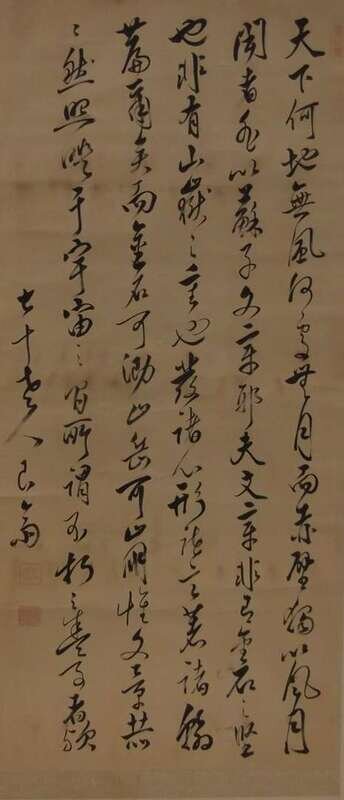 天下何地無風何處無月而赤壁獨以風月
聞者豈以蘇子文章耶夫文章非有金石之堅
也非有山嶽之重也發諸心形諸言著諸翰
爾矣而金石可泐山岳可崩惟文章赫
〻然照燿于宇宙之間所謂不朽之盛事者歟
七十老人良